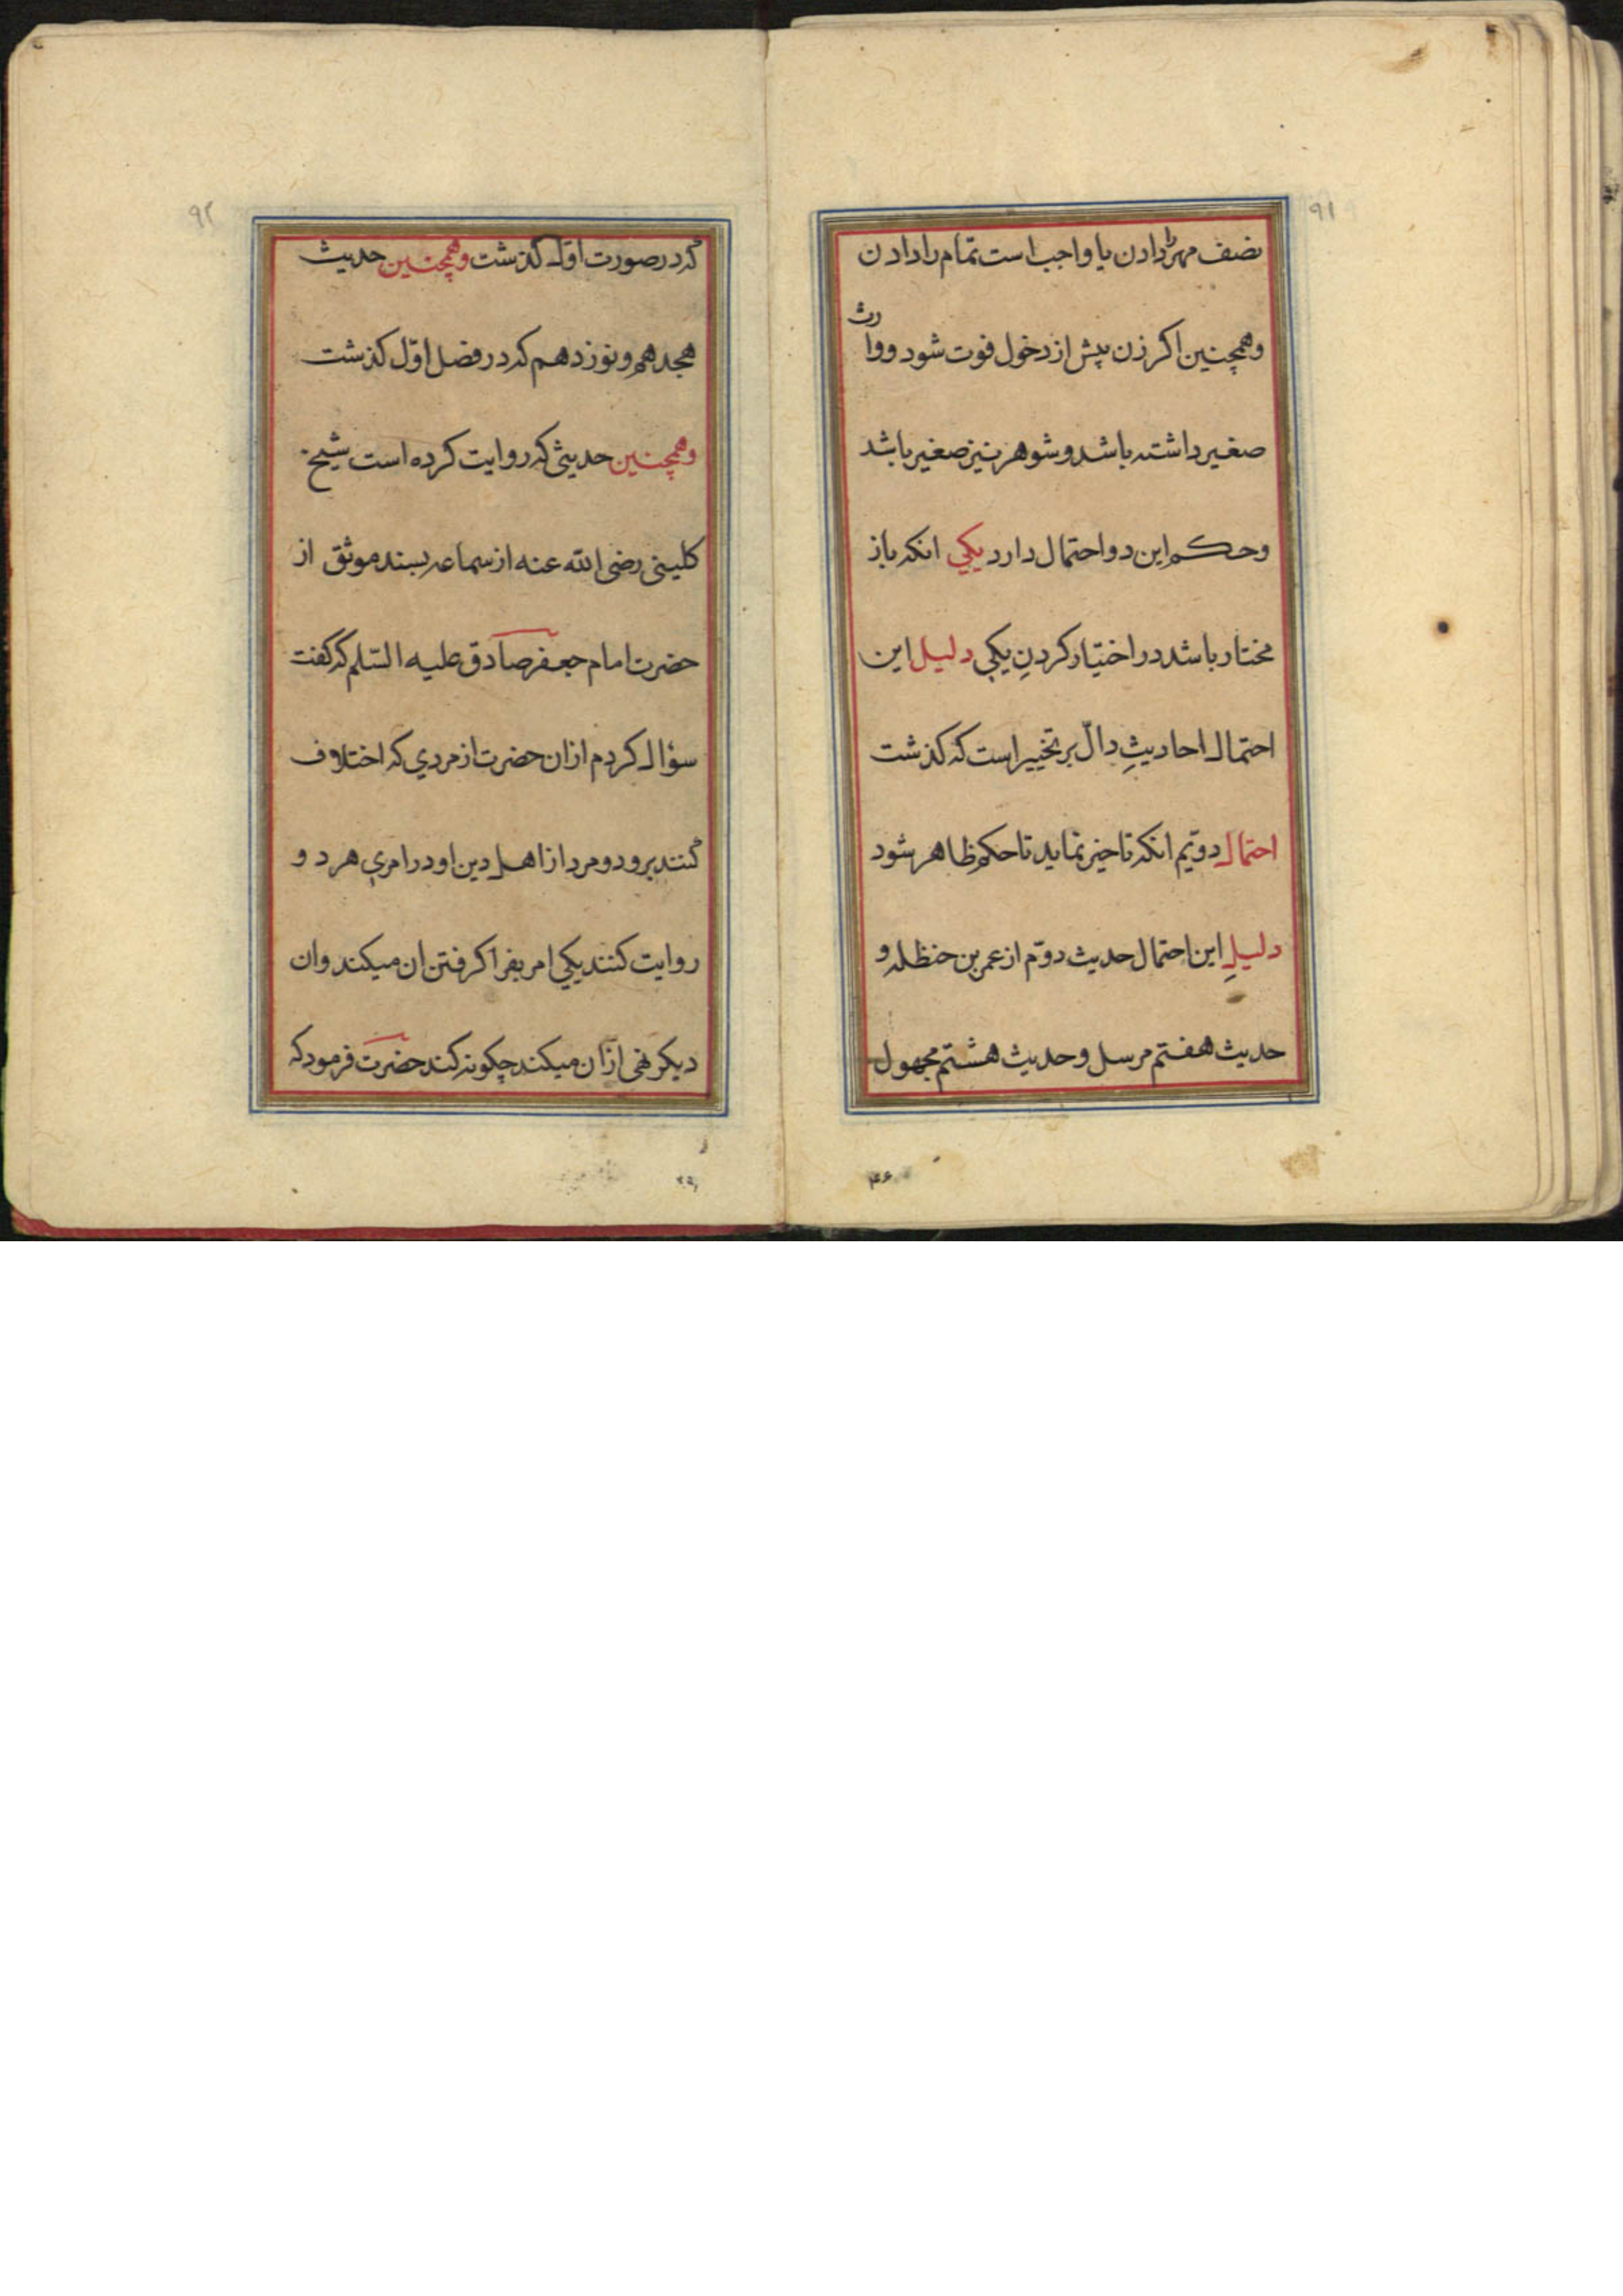 ۹۱
نصف مهر را دادن یا واجب است تمام را دادن
وهمچنین اکر زن پیش از دخول فوت شود ووارث
صغیر داشته باشد و شوهر نیز صغیر باشد
وحکم این دو احتمال دارد یکي انکه باز
مختار باشد در اختیار کردنِ یکي دلیل این
احتمال احادیثِ دالّ بر تخییر است که کذشت
احتمال دویّم انکه تاخیر نماید تا حکم ظاهر شود
دلیلِ این احتمال حدیث دوّم از عمر بن حنظله و
حدیث هفتم مرسل و حدیث هشتم مجهول
۹۲
که در صورت اوّل کذشت وهمچنین حدیث
هجدهم و نوزدهم که در فصل اوّل کذشت
وهمچنین حدیثی که روایت کرده است شیخ
کلینی رضی الله عنه از سماعه بسند موثق از
حضرت امام جعفر صادق علیه السّلم که کفت
سؤال کردم از ان حضرت از مردي که اختلاف
کنند برو دو مرد از اهل دین او در امري هر دو
روایت کنند یکي امر بفرا کرفتن ان میکند وان
دیکر نهی از ان میکند چکونه کند حضرت فرمود که